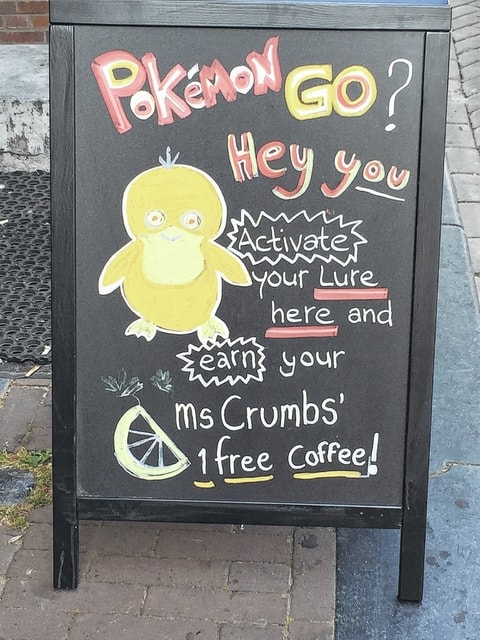 POKÉMON GO?
Hey you
Activate
your Lure
here and
earn your
ms Crumbs'
1 free Coffee!